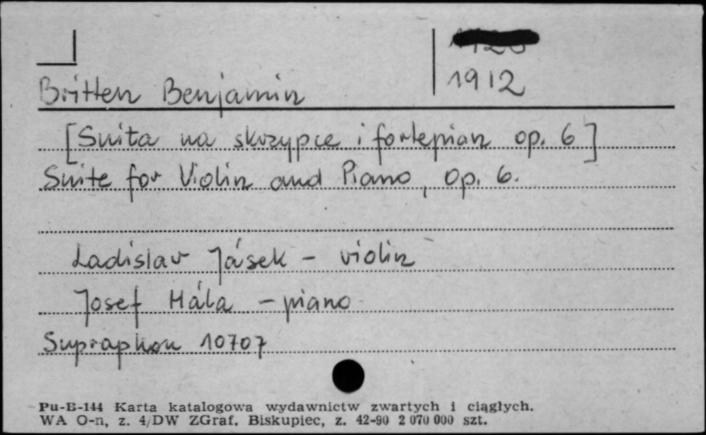 1912
Britten Benjamin
[Suita na skrzypce i fortepian op. 6]
Suite for Violin and Piano, Op. 6.
Ladislav Jásek - violin
Josef Hála - piano
Supraphon 10707
Pu-B-144 Karta katalogowa wydawnictw zwartych i ciągłych.
WA O-n, z. 4/DW ZGraf. Biskupiec, z. 42-90 2 070 000 szt.